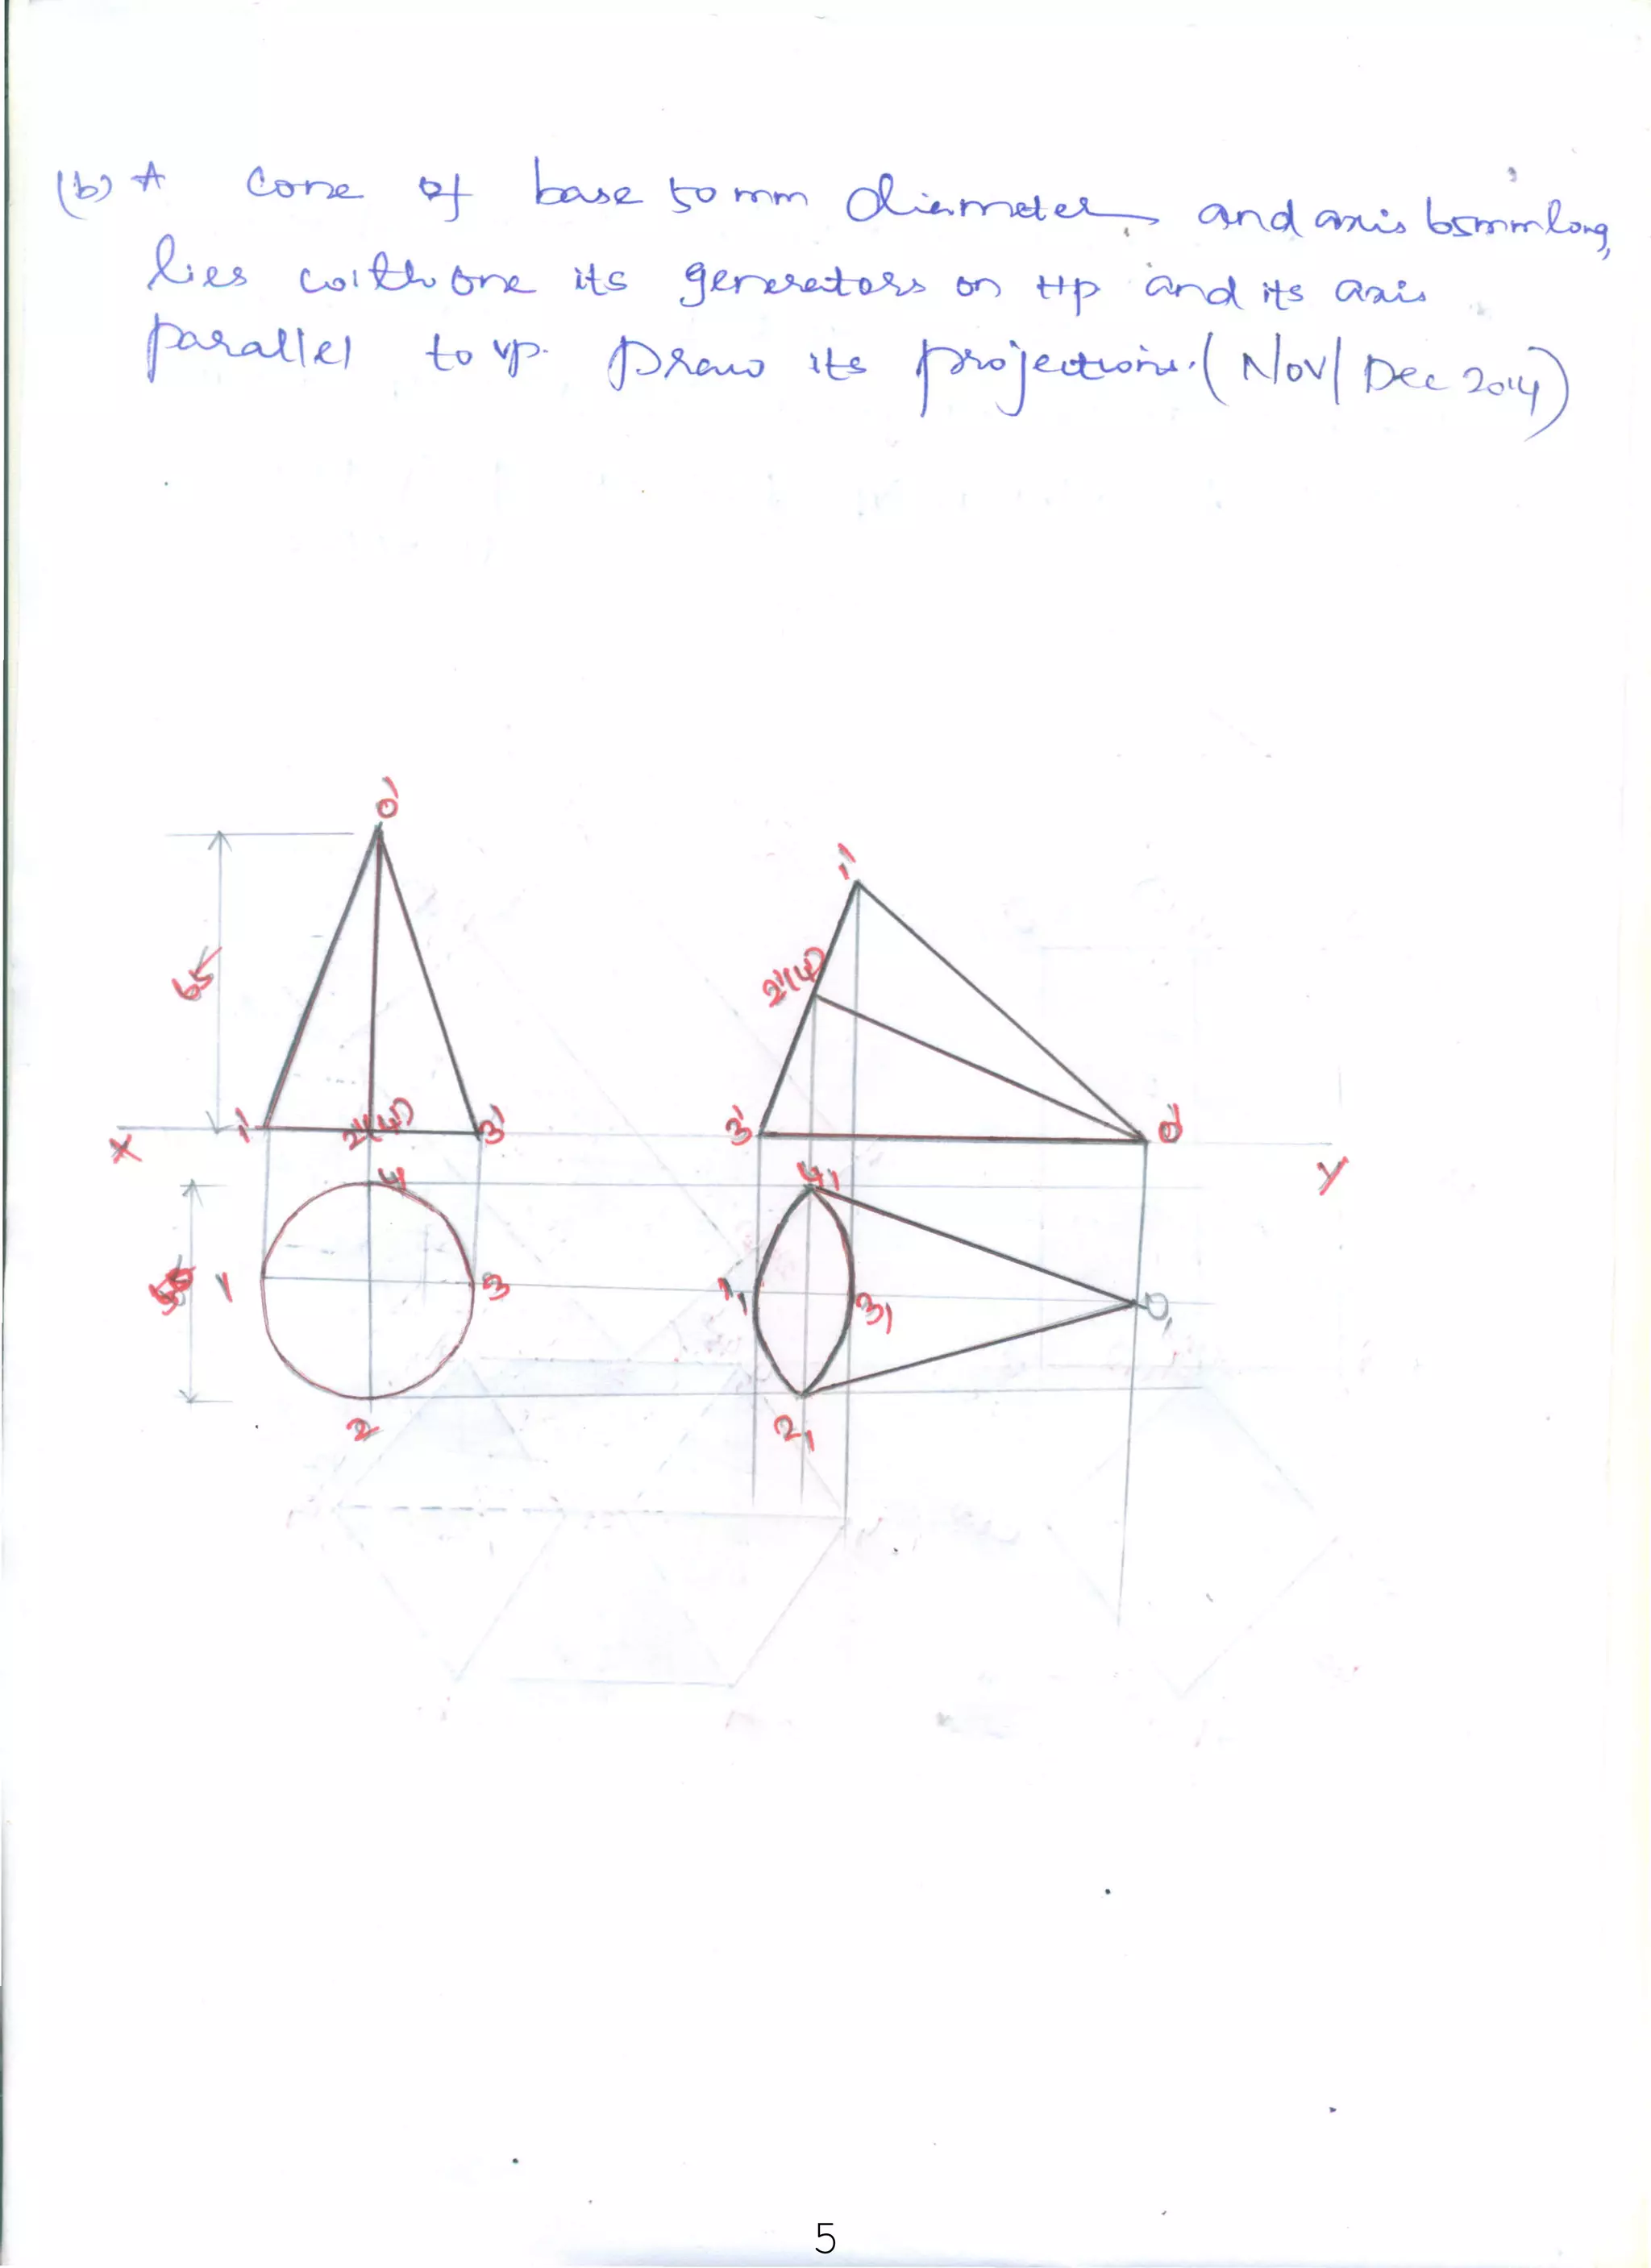 (b) A cone of base 50 mm diameter and axis 65mm long,
lies with one its generators on HP and its axis
parallel to VP. Draw its projections. (Nov/Dec 2014)
o'
1'
65
2'(4')
1'
2'(4')
3'
3'
o'
X
Y
4
4₁
50
1
3
1₁
3₁
O₁
2
2₁
5